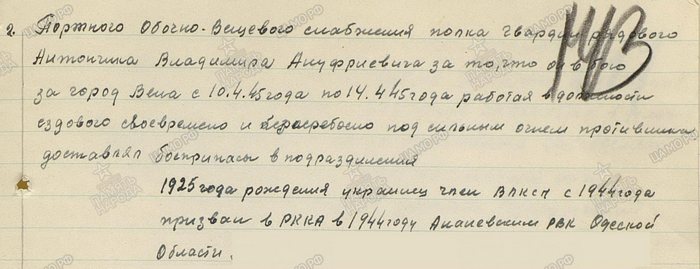 2. Портного Обочно-Вещевого снабжения полка гвардии рядового
Антончика Владимира Ануфриевича за то, что он в бою
за город Вена с 10.4.45 года по 14.4.45 года работая в должности
ездового своевремено и бесперебоено под сильным огнем противника
доставлял боеприпасы в подразделения
1925 года рождения украинец член ВЛКСМ с 1944 года
призван в РККА в 1944 году Ананевским РВК Одесской
Области.